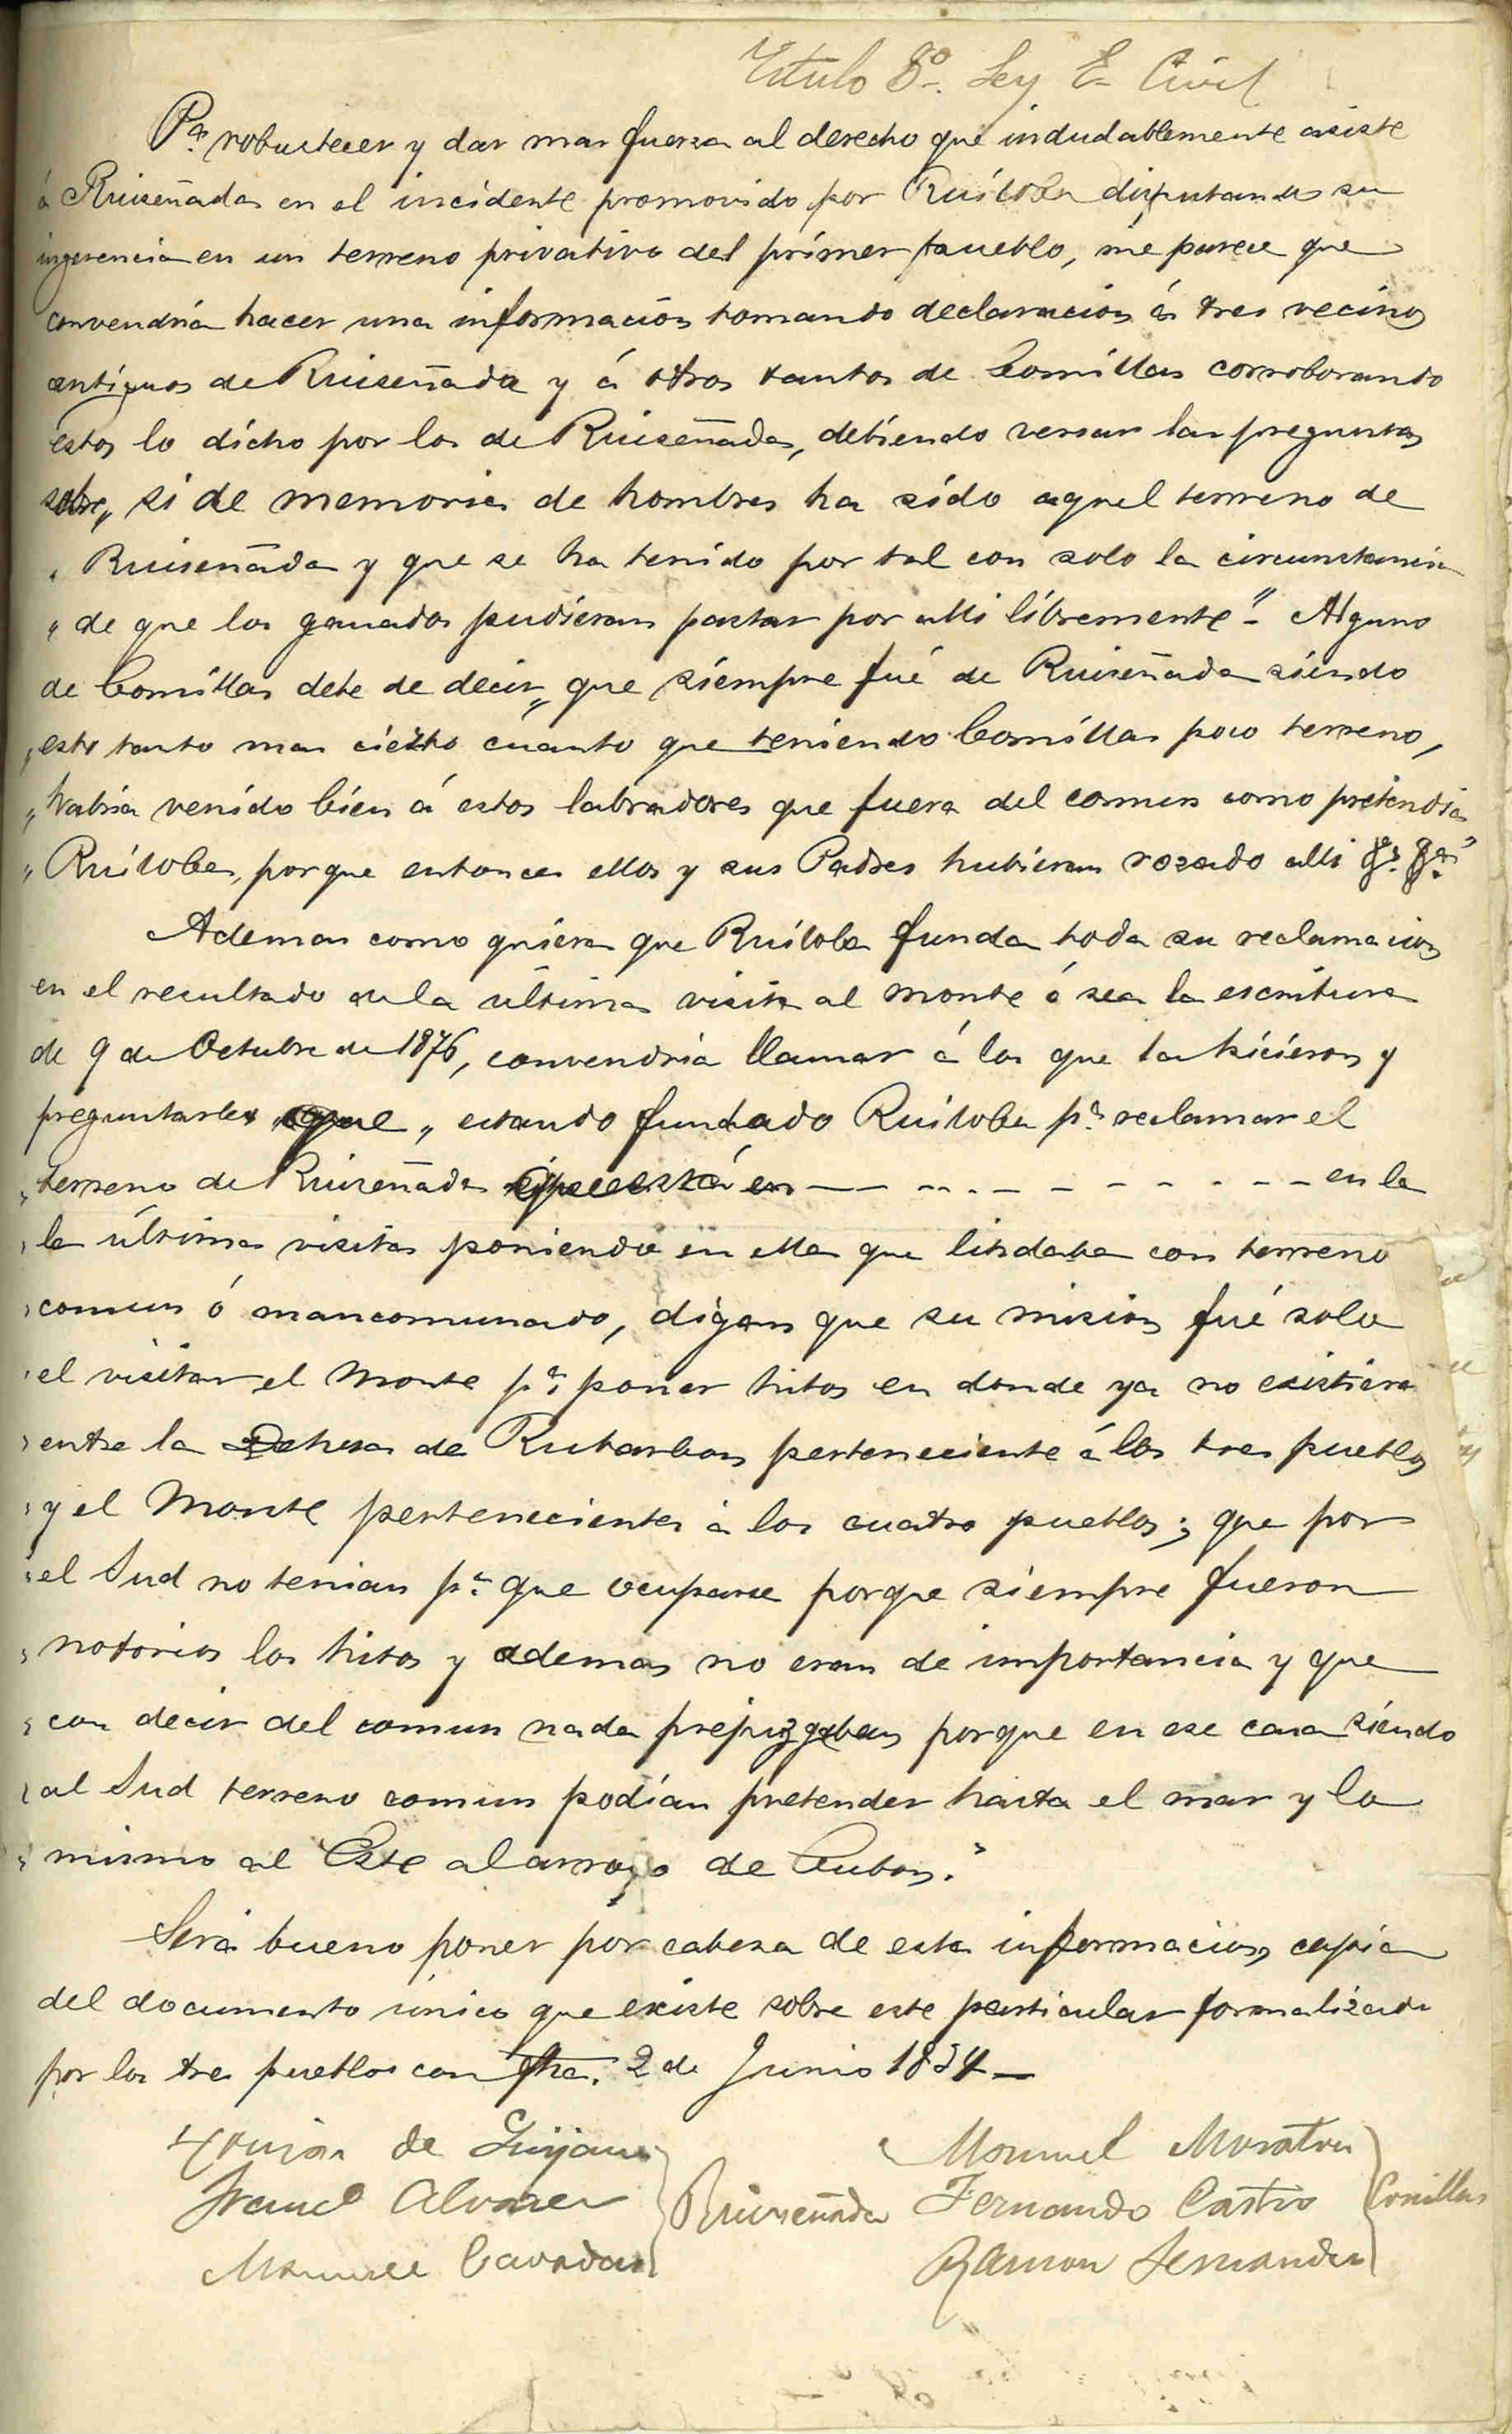 Titulo 8º. Ley E. Civil
Pª. robustecer y dar mas fuerza al derecho que indudablemente asiste
á Ruiseñada en el incidente promovido por Ruiloba disputando su
ingerencia en un terreno privativo del primer pueblo, me parece que
convendria hacer una informacion tomando declaracion á tres vecinos
antiguos de Ruiseñada y á otros tantos de Comillas corroborando
estos lo dicho por los de Ruiseñada, debiendo versar las preguntas
sobre „ si de memoria de hombres ha sido aquel terreno de
„ Ruiseñada y que se ha tenido por tal con solo la circunstancia
„ de que los ganados pudieran pastar por alli libremente". Alguno
de Comillas debe de decir „ que siempre fué de Ruiseñada siendo
„ esto tanto mas cierto cuanto que teniendo Comillas poco terreno,
„ habria venido bien á estos labradores que fuera del comun como pretendia
„ Ruiloba, porque entonces ellos y sus Padres hubieran rozado alli
Ademas como quiera que Ruiloba funda toda su reclamacion
en el resultado de la última visita al monte ó sea la escritura
de 9 de Octubre de 1876, convendria llamar á los que la hicieron y
preguntarles que „ estando fundado Ruiloba pª reclamar el
„ terreno de Ruiseñada que está en — — - - - - - - - - en la
„ la última visita poniendo en ella que lindaba con terreno
„ comun ó mancomunado, digan que su mision fué solo
„ el visitar el Monte pª. poner hitos en donde ya no existiera
„ entre la Dehesa de Rubarban perteneciente á los tres pueblos
„ y el Monte perteneciente á los cuatro pueblos; que por
„ el Sud no tenian pª. que ocuparse porque siempre fueron
„ notorios los hitos y ademas no eran de importancia y que
„ con decir del comun nada prejuzgaban porque en ese caso siendo
„ al Sud terreno comun podian pretender hasta el mar y lo
„ mismo al Este al arroyo de Cubon."
Será bueno poner por cabeza de esta informacion, copia
del documento único que existe sobre este particular formalizado
por los tres pueblos con fha. 2 de Junio 1834 —
de Guijano
Alvarez
Ruiseñada
Manuel
Fernando Castro
Comillas
Ramon Fernandez